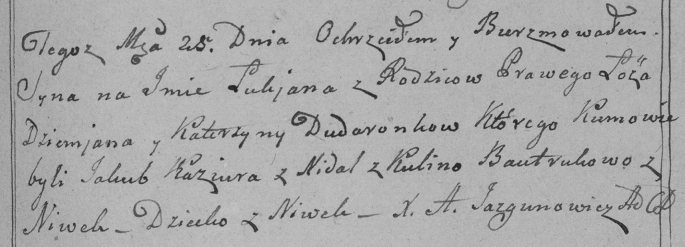 Tegoż Mca 25. Dnia Ochrzciłem y Bierzmowałem.
Syna na Imie Lukjana z Rodzicow Prawego Łoża
Dziemjana y Katerzyny Dudaronkow Którego Kumowie
byli Jakub Kaziura z Nidal z Kulino Bautrukowo z
Niwek – Dziecko z Niwek – X. A. Jazgunowicz